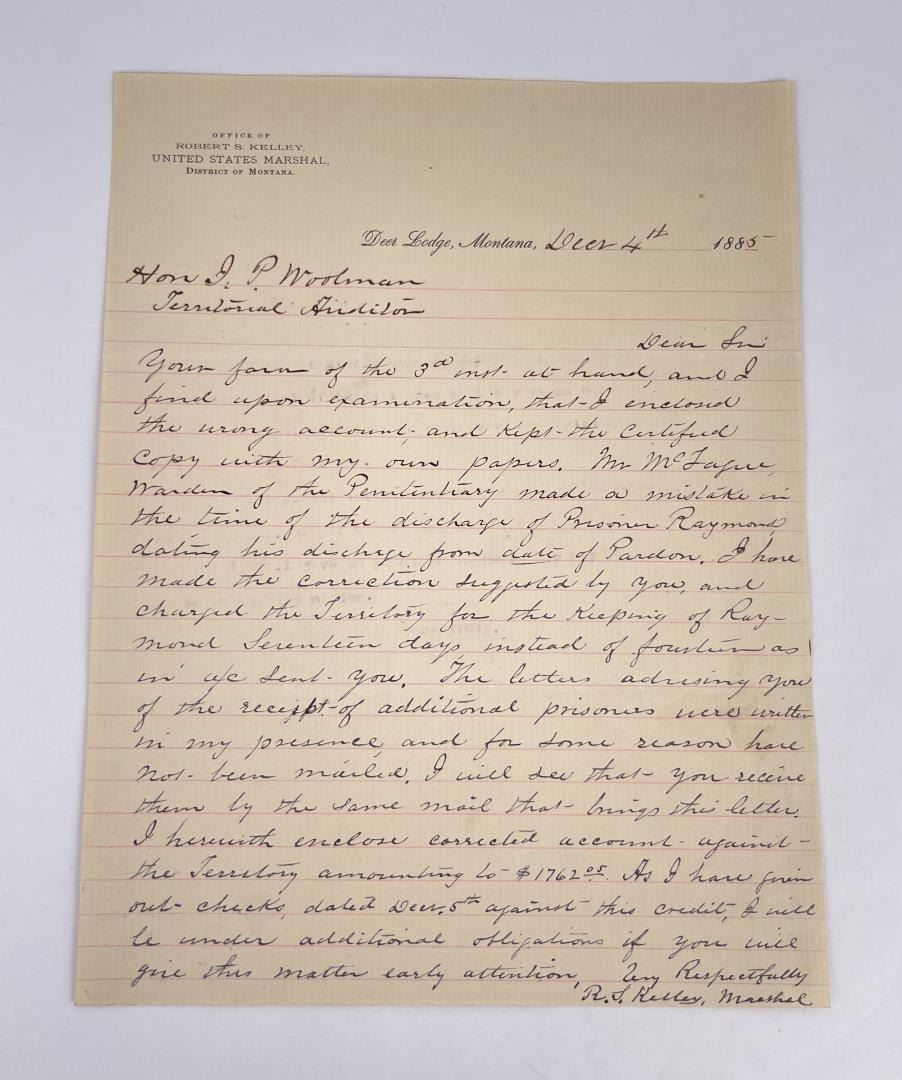 OFFICE OF
ROBERT S. KELLEY,
UNITED STATES MARSHAL,
DISTRICT OF MONTANA.
Deer Lodge, Montana, Decr 4th 1885
Hon J. P. Woolman
Territorial Auditor
Dear Sir
Your favor of the 3rd inst. at hand, and I
find upon examination, that I enclosed
the wrong account, and kept the Certified
Copy with my own papers. Mr McTague,
Warden of the Penitentiary made a mistake in
the time of the discharge of Prisoner Raymond,
dating his discharge from date of Pardon. I have
made the correction suggested by you, and
charged the Territory for the Keeping of Ray-
mond Seventeen days, instead of fourteen as
in a/c sent you. The letters advising you
of the receipt of additional prisoners were written
in my presence, and for some reason have
not been mailed. I will see that you receive
them by the same mail that brings this letter.
I herewith enclose corrected account against
the Territory amounting to $1762.05. As I have given
out checks, dated Decr. 5th against this credit, I will
be under additional obligations if you will
give this matter early attention, Very Respectfully
R. S. Kelley, Marshal